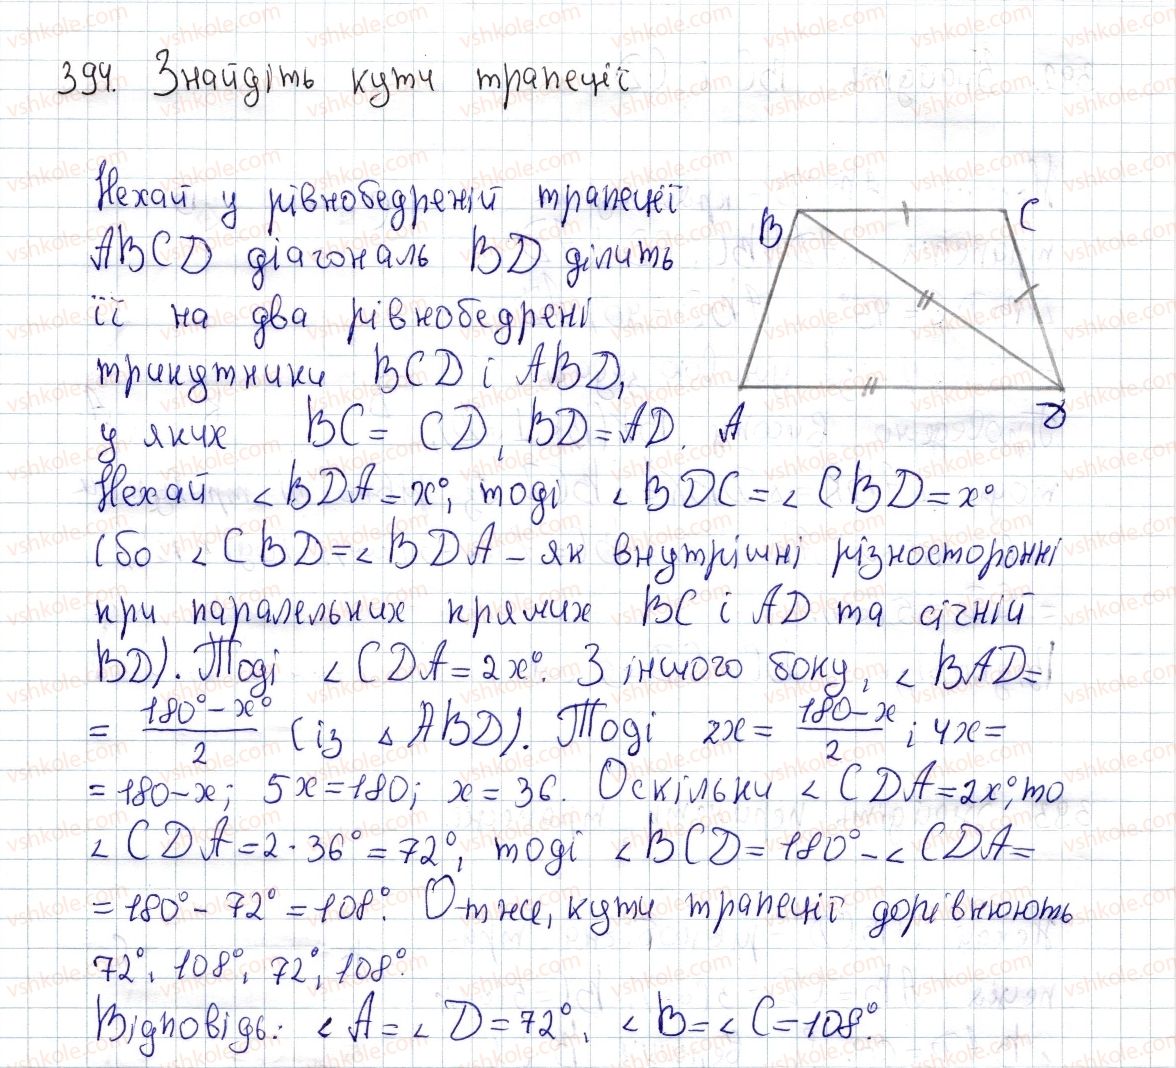 394. Знайдіть кути трапеції
Нехай у рівнобедреній трапеції
ABCD діагональ BD ділить
її на два рівнобедрені
трикутники BCD і ABD,
у яких BC = CD, BD = AD.
B
C
A
D
Нехай ∠BDA = x°, тоді ∠BDC = ∠CBD = x°
(бо ∠CBD = ∠BDA – як внутрішні різносторонні
при паралельних прямих BC і AD та січній
BD). Тоді ∠CDA = 2x°. З іншого боку, ∠BAD =
= (180° – x°)/2 (із △ABD). Тоді 2x = (180 – x)/2; 4x =
= 180 – x; 5x = 180; x = 36. Оскільки ∠CDA = 2x°, то
∠CDA = 2 · 36° = 72°, тоді ∠BCD = 180° – ∠CDA =
= 180° – 72° = 108°. Отже, кути трапеції дорівнюють
72°, 108°, 72°, 108°.
Відповідь: ∠A = ∠D = 72°, ∠B = ∠C = 108°.